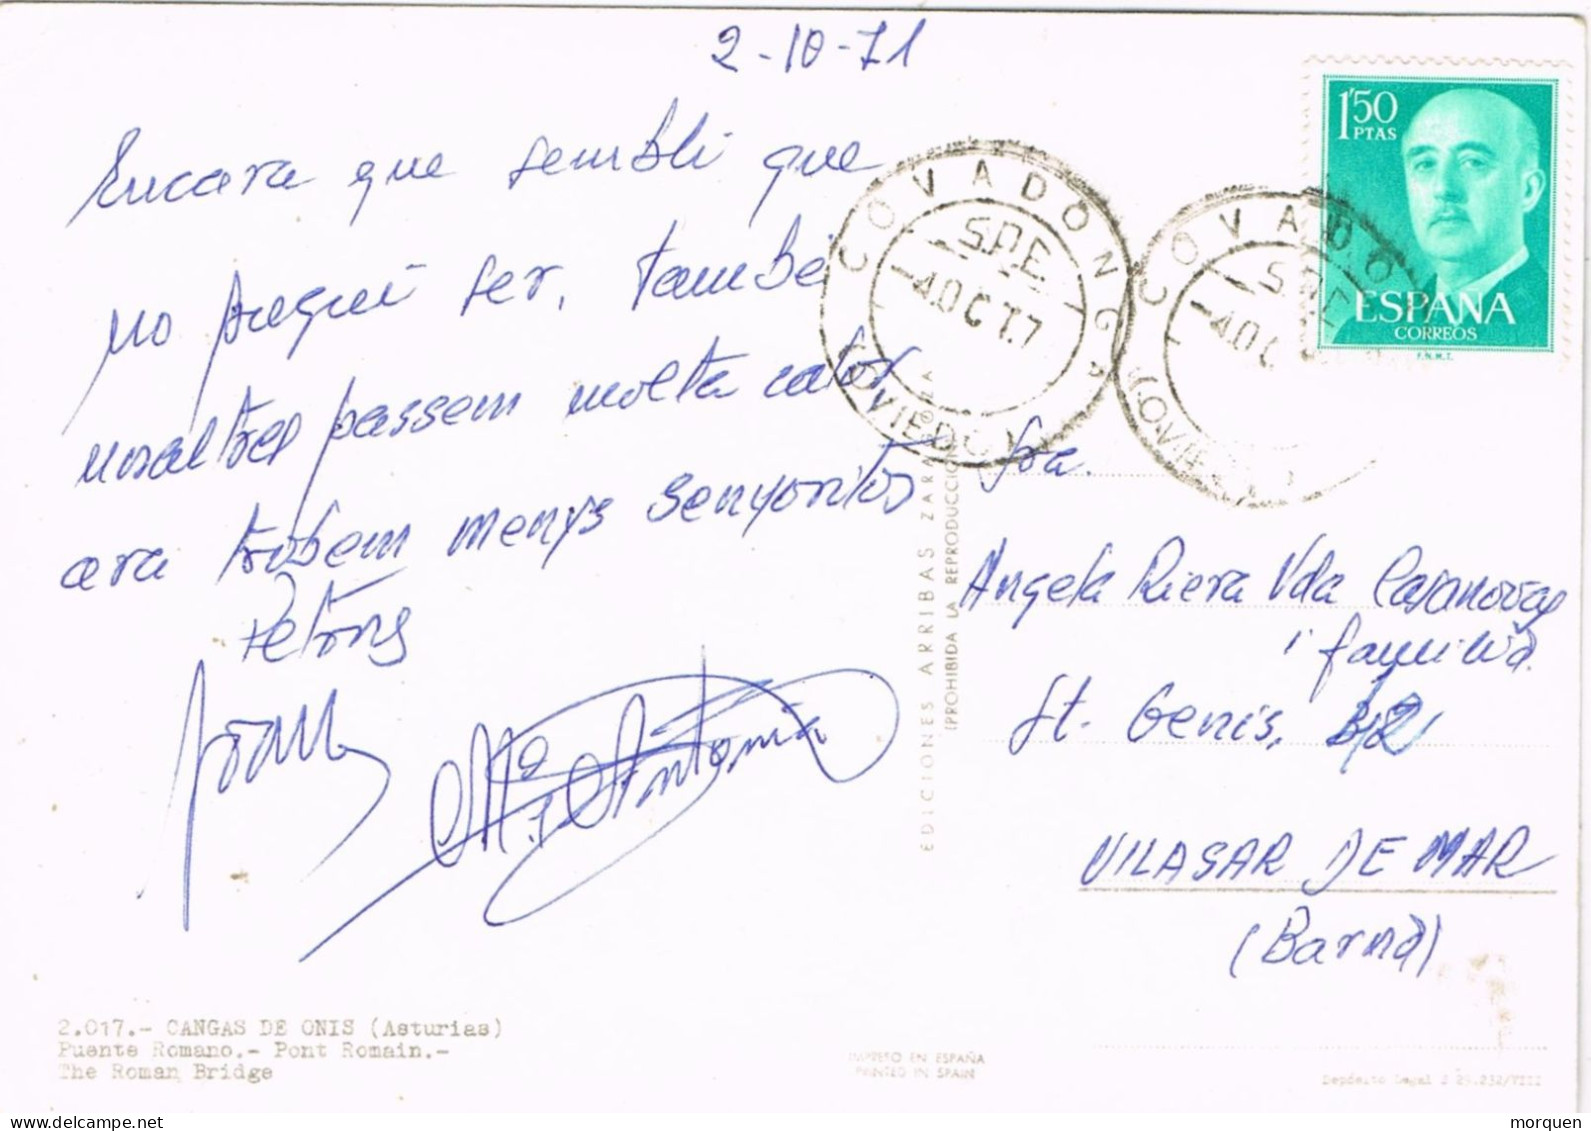 2-10-71
Encara que sembli que
no pugui ser, també
nosaltres passem molta calor
ara trobem menys senyoritos
Petons
Joan
Mª Antonia
1'50
PTAS
ESPAÑA
CORREOS
F.N.M.T.
COVADONGA
S.P.E.
4 OCT.7
(OVIEDO)
COVADO
S.P.E
4 OC
(OVIE
Sra.
Angela Riera Vda Casanovas
i familia.
St. Genis, 32
VILASAR DE MAR
(Barna)
EDICIONES ARRIBAS ZARAGOZA
(PROHIBIDA LA REPRODUCCION)
2.017.- CANGAS DE ONIS (Asturias)
Puente Romano.- Pont Romain.-
The Roman Bridge
IMPRESO EN ESPAÑA
PRINTED IN SPAIN
Depósito Legal Z 29.232/VIII
morquen